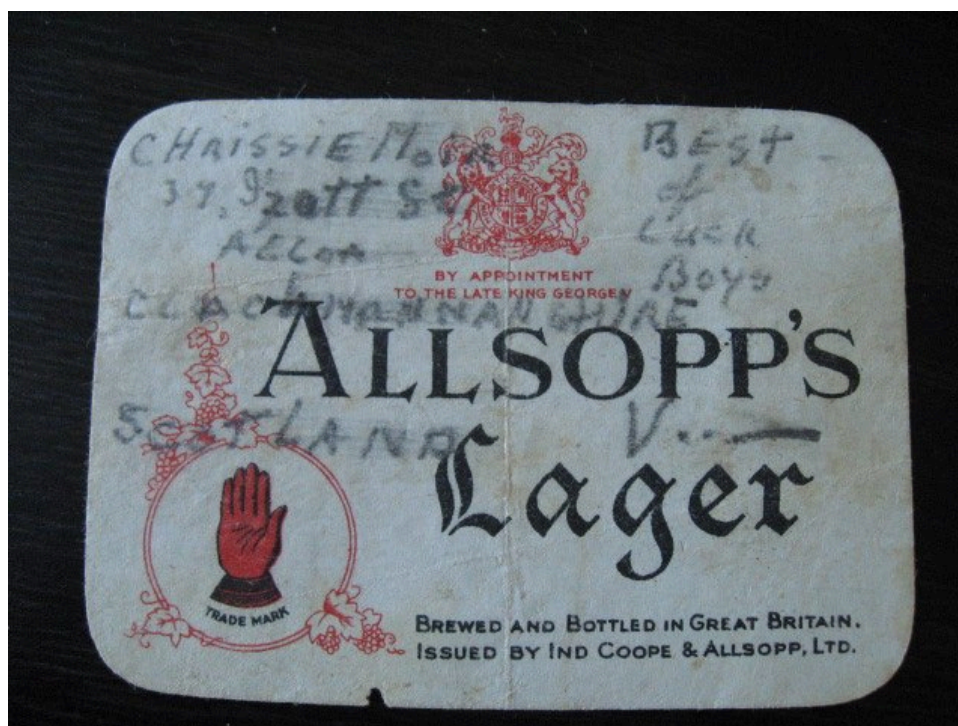 CHRISSIE MOIR
St
ALLOA
CLACKMANNANSHIRE
SCOTLAND
BEST
of
LUCK
BOYS
V...—
BY APPOINTMENT
TO THE LATE KING GEORGE V
ALLSOPP'S
Lager
TRADE MARK
BREWED AND BOTTLED IN GREAT BRITAIN.
ISSUED BY IND COOPE & ALLSOPP, LTD.